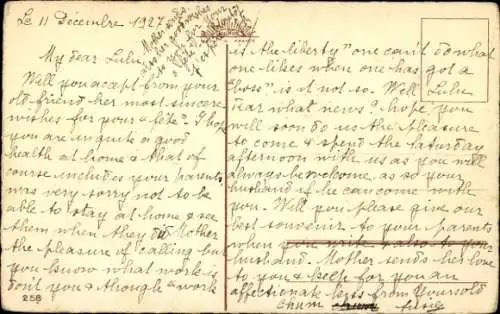 Le 11 Décembre 1927
Mother sends
also her good wishes
to you for your
"fête"
My dear Lulu
Will you accept from your
old friend her most sincere
wishes for your "fête"? I hope
you are in quite a good
health at home & that of
course includes your parents.
was very sorry not to be
able to stay at home & see
them when they did Mother
the pleasure of calling but
you know what work is
don't you & though a work
258
is "the liberty" one can't do what
one likes when one has got a
"boss" is it not so. Well Lulu
dear what news? hope you
will soon do us the pleasure
to come & spend the Saturday
afternoon with us as you will
always be welcome as so your
husband if he can come with
you. Will you please give our
best souvenir to your parents
when you write & also to your
husband. Mother sends her love
to you & keep for you an
affectionate kiss from Yours old
chum